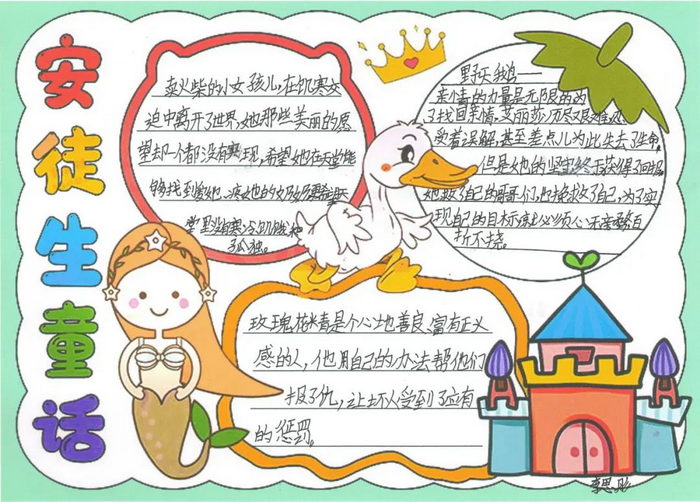 安徒生童话
卖火柴的小女孩儿,在饥寒交
迫中离开了世界,她那些美丽的愿
望却一个都没有实现,希望她在天堂能
够找到爱她、疼她的奶奶
堂里没有寒冷、饥饿和
孤独。
野天鹅——
亲情的力量是无限的,为
了找回亲情,艾丽莎历尽艰难
受着误解,甚至差点儿为此失去了生命,
但是她的坚定终于获得了回报,
她救了自己的哥哥们,也拯救了自己,为了实
现自己的目标就必须
折不挠。
玫瑰花精是个心地善良、富有正义
感的人,他用自己的办法帮他们
报了仇,让坏人受到了应有
的惩罚。
李思彤